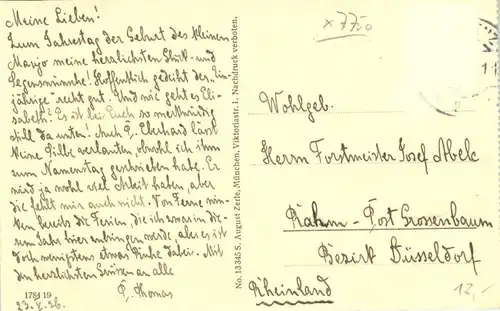 Meine Lieben!
Zum Jahrestag der Geburt des kleinen
Marjo meine herzlichsten Glück- und
Segenswünsche! Hoffentlich gedeiht der "Ein-
jährige" recht gut. Und wie geht es Eli-
sabeth? Es ist bei Euch so merkwürdig
still da unten! Auch P. Eberhard lässt
keine Silbe verlauten, obwohl ich ihm
zum Namenstag geschrieben habe. Er
wird ja wohl viel Arbeit haben, aber
die fehlt mir auch nicht. Von Ferne win-
ken bereits die Ferien, die ich zwar in die-
sem Jahr hier verbringen werde, aber es ist
doch wenigstens etwas Ruhe dabei. Mit
den herzlichsten Grüssen an alle
P. Thomas
1784 19
23. V. 26.
No. 13345 S. August Zerle, München, Viktoriastr. 1. Nachdruck verboten.
x7750
Wohlgeb.
Herrn Forstmeister Josef Abele
Rahm - Post Grossenbaum
Bezirk Düsseldorf
Rheinland
12,-